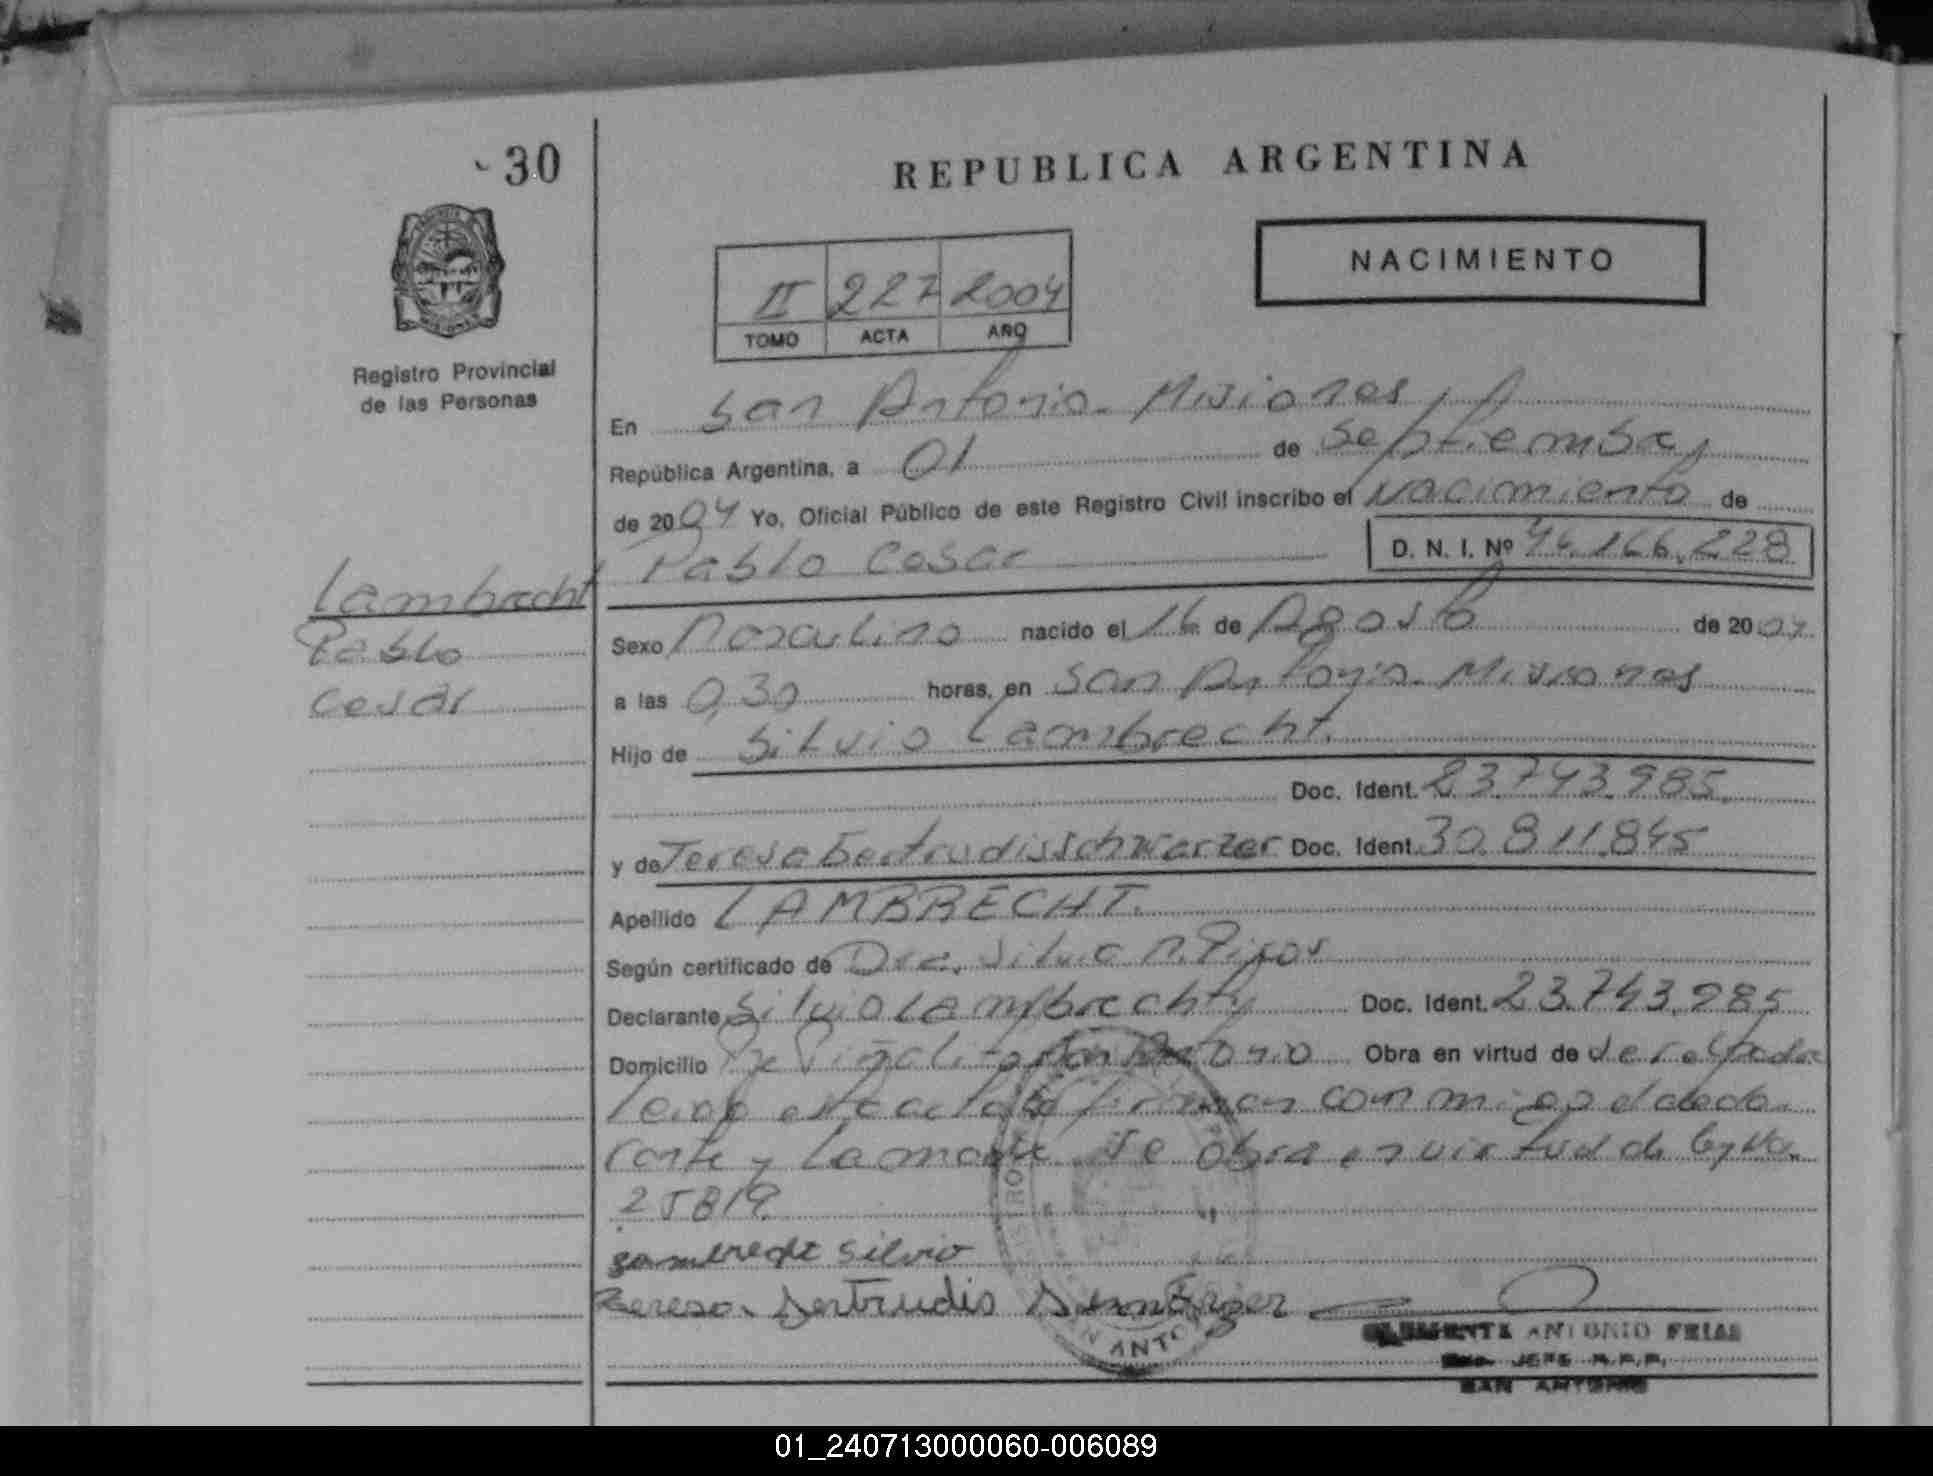 30
REPUBLICA ARGENTINA
NACIMIENTO
II 227 2004
TOMO ACTA AÑO
Registro Provincial
de las Personas
En San Antonio. Misiones,
República Argentina, a 01 de Septiembre,
de 2004 Yo, Oficial Público de este Registro Civil inscribo el Nacimiento de
Pablo Cesar D. N. I. Nº 46.166.228
Lambrecht
Pablo
Cesar
Sexo Masculino nacido el 16 de Agosto de 2004
a las 0,30 horas, en San Antonio. Misiones
Hijo de Silvio Lambrecht.
Doc. Ident. 23.743.985.
y de Teresa Gertrudis Schwarzer Doc. Ident. 30.811.845
Apellido LAMBRECHT.
Según certificado de Dra. Silvia
Declarante Silvio Lambrecht y Doc. Ident. 23.743.985
Domicilio Piñalito San Antonio Obra en virtud de
Leida el acta firman con migo el decla
rante y La madre Se obra en virtud de Ley No.
25819
Lambrecht Silvio
Teresa Gertrudis
CLEMENTE ANTONIO FRIAS
JEFE R.P.P.
SAN ANTONIO
01_240713000060-006089